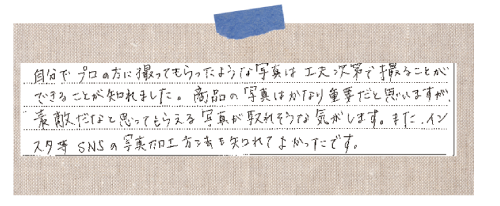 自分でプロの方に撮ってもらったような写真は工夫次第で撮ることが
できることが知れました。商品の写真はかなり重要だと思いますが、
素敵だなと思ってもらえる写真が取れそうな気がします。また、イン
スタ等SNSの写真加工方法も知れてよかったです。